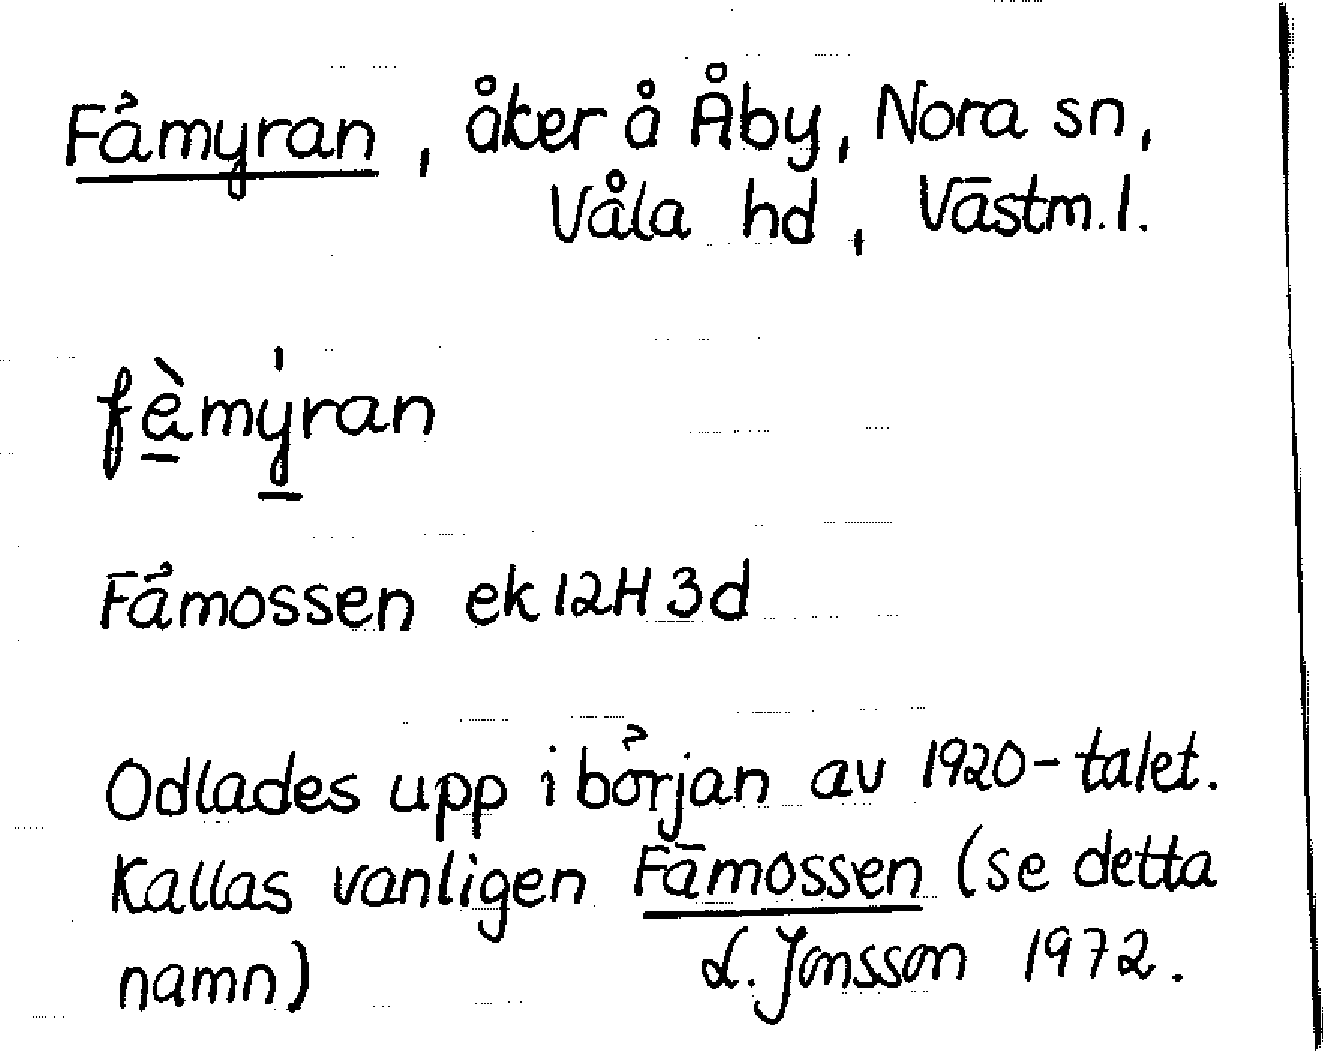 Fämyran, åker å Åby, Nora sn,
Våla hd, Västm.l.
fæ̀mýran
Fämossen ek 12H 3d
Odlades upp i början av 1920-talet.
Kallas vanligen Fämossen (se detta
namn) L. Jonsson 1972.